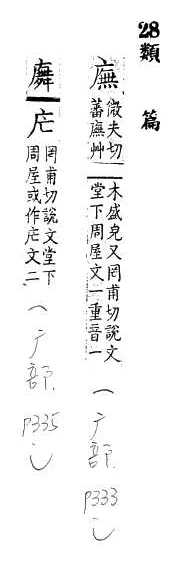 28類 篇
廡 微夫切
蕃廡艸
木盛皃又罔甫切說文
堂下周屋文一重音一
(广部 P333乙)
罔甫切說文堂下
周屋或作文二
(广部 P335乙)